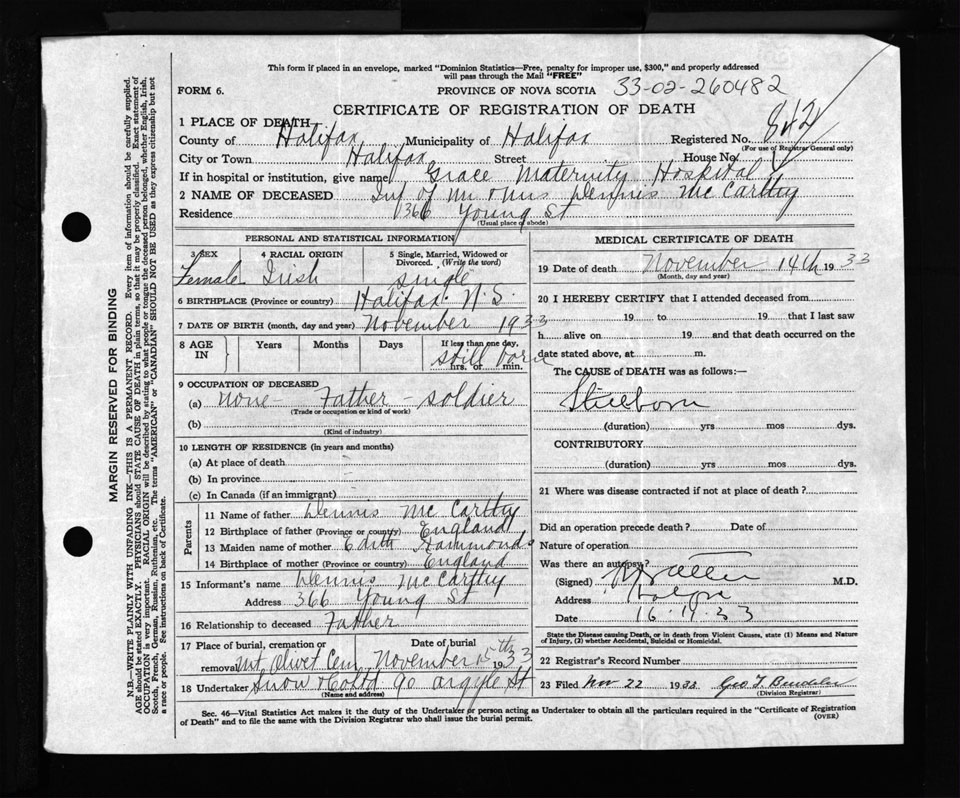 This form if placed in an envelope, marked "Dominion Statistics—Free, penalty for improper use, $300," and properly addressed
will pass through the Mail "FREE"
FORM 6.
PROVINCE OF NOVA SCOTIA 33-02-260482
CERTIFICATE OF REGISTRATION OF DEATH
1 PLACE OF DEATH
County of Halifax Municipality of Halifax Registered No. 842
(For use of Registrar General only)
City or Town Halifax Street House No.
If in hospital or institution, give name Grace Maternity Hospital
2 NAME OF DECEASED Inf of Mr & Mrs Dennis McCarthy
Residence 366 Young St
(Usual place of abode)
PERSONAL AND STATISTICAL INFORMATION
3 SEX 4 RACIAL ORIGIN 5 Single, Married, Widowed or
Divorced. (Write the word)
Female Irish single
6 BIRTHPLACE (Province or country) Halifax N.S.
7 DATE OF BIRTH (month, day and year) November 1933
8 AGE IN Years Months Days If less than one day,
still born
hrs. or min.
9 OCCUPATION OF DECEASED
(a) none Father soldier
(Trade or occupation or kind of work)
(b)
(Kind of industry)
10 LENGTH OF RESIDENCE (in years and months)
(a) At place of death
(b) In province
(c) In Canada (if an immigrant)
Parents
11 Name of father Dennis McCarthy
12 Birthplace of father (Province or country) England
13 Maiden name of mother Edith Hammonds
14 Birthplace of mother (Province or country) England
15 Informant's name Dennis McCarthy
Address 366 Young St
16 Relationship to deceased Father
17 Place of burial, cremation or Date of burial
removal Mt Olivet Cem. November 15th 1933
18 Undertaker Snow & Co Ltd 90 Argyle St
(Name and address)
MEDICAL CERTIFICATE OF DEATH
19 Date of death November 14th 1933
(Month, day and year)
20 I HEREBY CERTIFY that I attended deceased from
19 to 19 that I last saw
h alive on 19 and that death occurred on the
date stated above, at m.
The CAUSE of DEATH was as follows:—
Stillborn
(duration) yrs mos dys.
CONTRIBUTORY
(duration) yrs mos dys.
21 Where was disease contracted if not at place of death?
Did an operation precede death? Date of
Nature of operation
Was there an autopsy?
(Signed) M.D.
Address Halifax
Date 16.11.33
State the Disease causing Death, or in death from Violent Causes, state (1) Means and Nature
of Injury, (2) whether Accidental, Suicidal or Homicidal.
22 Registrar's Record Number
23 Filed Nov 22 1933 Geo
(Division Registrar)
Sec. 46—Vital Statistics Act makes it the duty of the Undertaker or person acting as Undertaker to obtain all the particulars required in the "Certificate of Registration
of Death" and to file the same with the Division Registrar who shall issue the burial permit. (OVER)
MARGIN RESERVED FOR BINDING
N.B.—WRITE PLAINLY WITH UNFADING INK—THIS IS A PERMANENT RECORD. Every item of information should be carefully supplied.
AGE should be stated EXACTLY. PHYSICIANS should STATE CAUSE OF DEATH in plain terms, so that it may be properly classified. Exact statement of
OCCUPATION is very important. RACIAL ORIGIN will be described by stating to what people or tongue the deceased person belonged, whether English, Irish,
Scotch, French, German, Russian, Ruthenian, etc. The terms "AMERICAN" or "CANADIAN" SHOULD NOT BE USED as they express citizenship but not
a race or people. See instructions on back of Certificate.